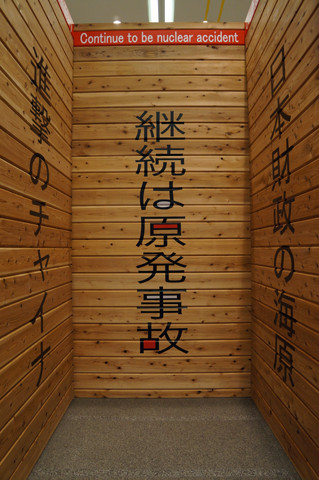 Continue to be nuclear accident
日本財政の海原
継続は原発事故
進撃のチャイナ